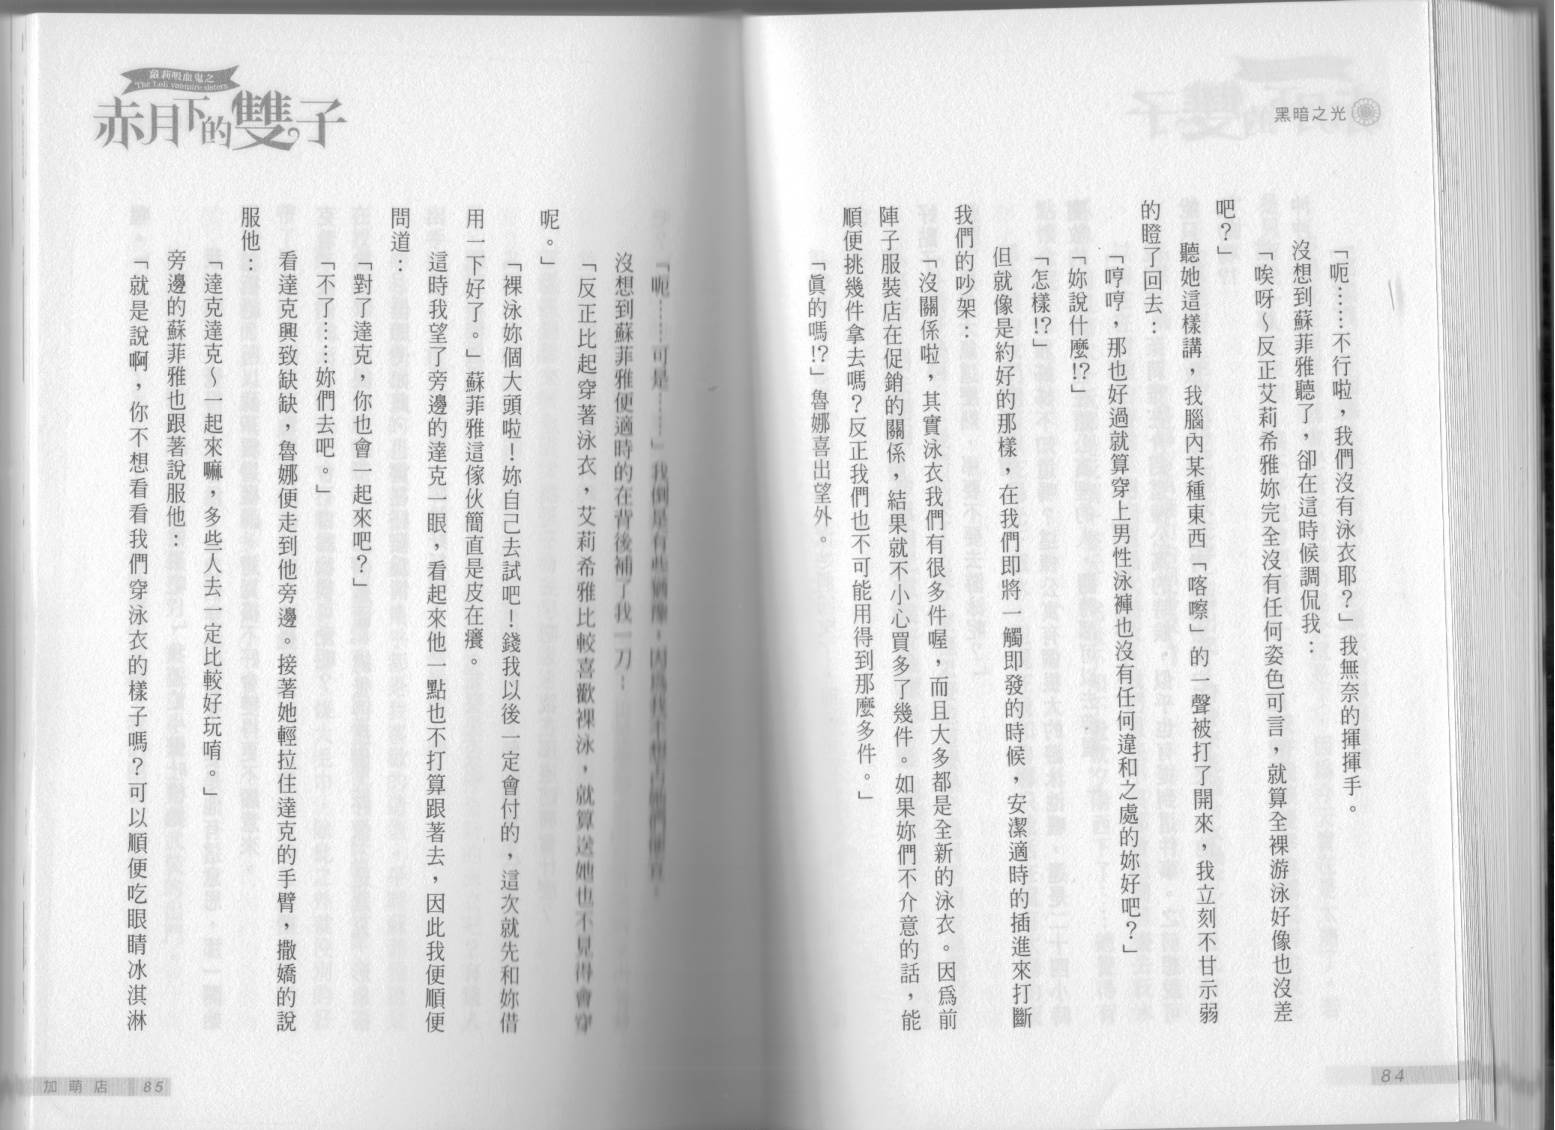 黑暗之光
「呃……不行啦，我們沒有泳衣耶？」我無奈的揮揮手。
沒想到蘇菲雅聽了，卻在這時候調侃我：
「唉呀～反正艾莉希雅妳完全沒有任何姿色可言，就算全裸游泳好像也沒差
吧？」
聽她這樣講，我腦內某種東西「喀嚓」的一聲被打了開來，我立刻不甘示弱
的瞪了回去：
「哼哼，那也好過就算穿上男性泳褲也沒有任何違和之處的妳好吧？」
「妳說什麼!?」
「怎樣!?」
但就像是約好的那樣，在我們即將一觸即發的時候，安潔適時的插進來打斷
我們的吵架：
「沒關係啦，其實泳衣我們有很多件喔，而且大多都是全新的泳衣。因為前
陣子服裝店在促銷的關係，結果就不小心買多了幾件。如果妳們不介意的話，能
順便挑幾件拿去嗎？反正我們也不可能用得到那麼多件。」
「真的嗎!?」魯娜喜出望外。
84
蘿莉吸血鬼之
The Loli vampire sisters
赤月下的雙子
「呃……可是……」我倒是有些猶豫，因為我不想占她們便宜。
沒想到蘇菲雅便適時的在背後補了我一刀：
「反正比起穿著泳衣，艾莉希雅比較喜歡裸泳，就算送她也不見得會穿
呢。」
「裸泳妳個大頭啦！妳自己去試吧！錢我以後一定會付的，這次就先和妳借
用一下好了。」蘇菲雅這傢伙簡直是皮在癢。
這時我望了旁邊的達克一眼，看起來他一點也不打算跟著去，因此我便順便
問道：
「對了達克，你也會一起來吧？」
「不了……妳們去吧。」
看達克興致缺缺，魯娜便走到他旁邊。接著她輕拉住達克的手臂，撒嬌的說
服他：
「達克達克～一起來嘛，多些人去一定比較好玩唷。」
旁邊的蘇菲雅也跟著說服他：
「就是說啊，你不想看看我們穿泳衣的樣子嗎？可以順便吃眼睛冰淇淋
加萌店 85